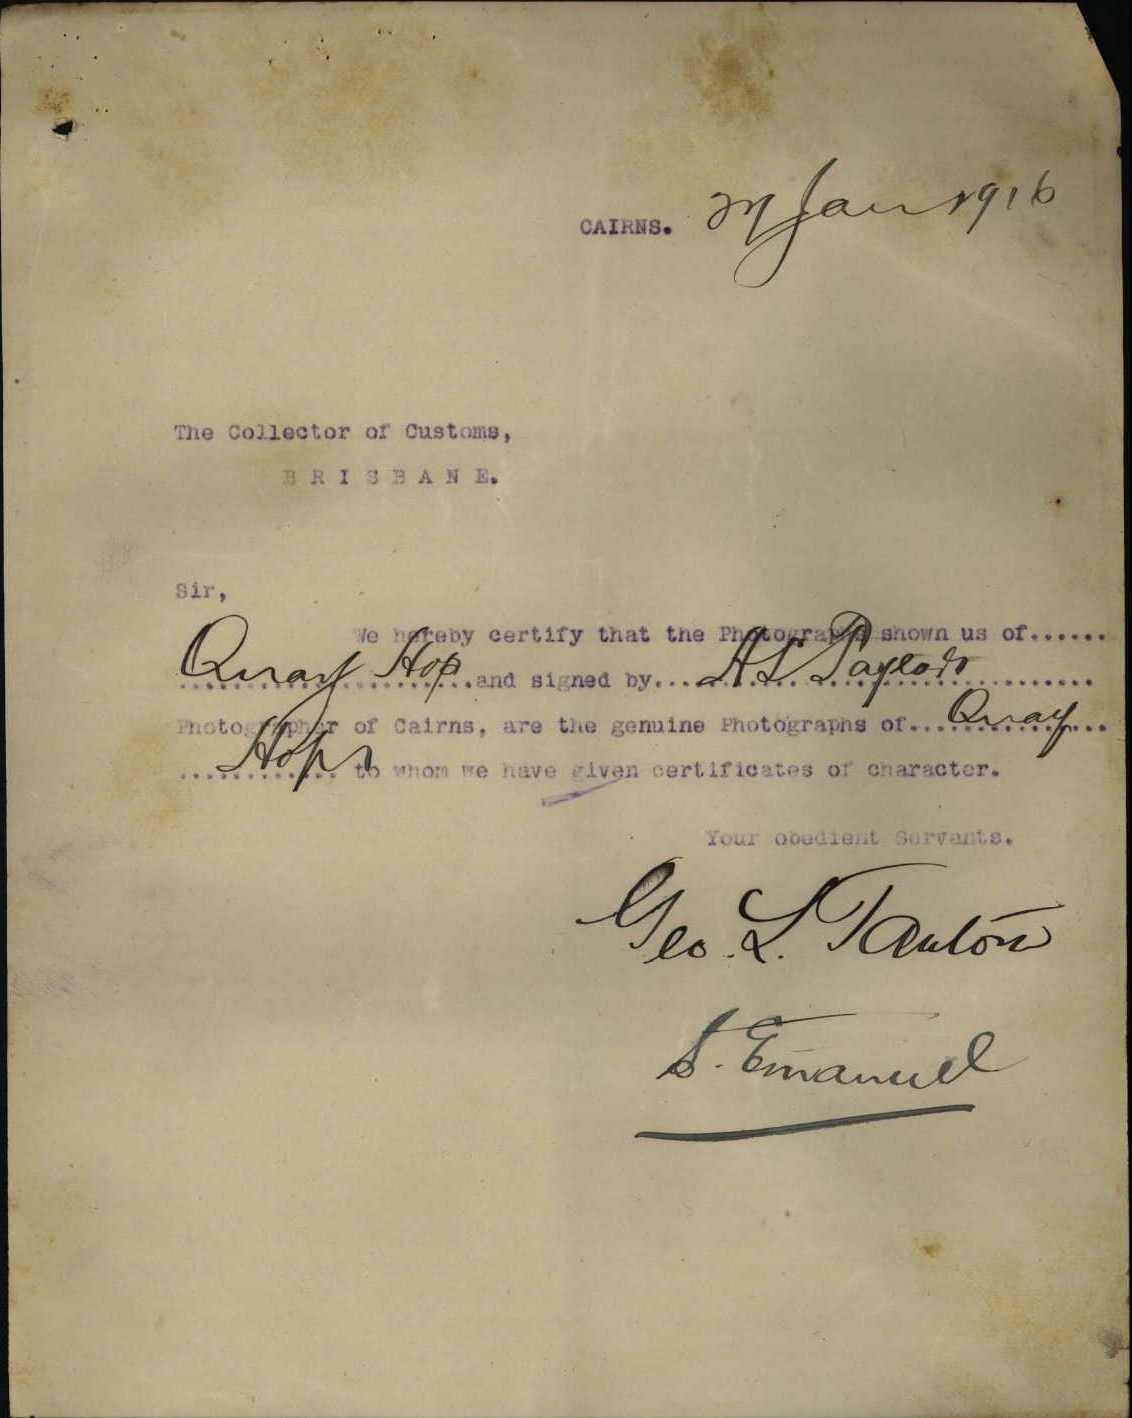 CAIRNS. 27 Jan 1916
The Collector of Customs,
BRISBANE.
Sir,
We hereby certify that the Photographs shown us of......
Quay Hop.and signed by....A L Paylor......
Photographer of Cairns, are the genuine Photographs of....Quay...
Hop to whom we have given certificates of character.
Your obedient Servants.
Geo. L. Tanton
S. Emanuel